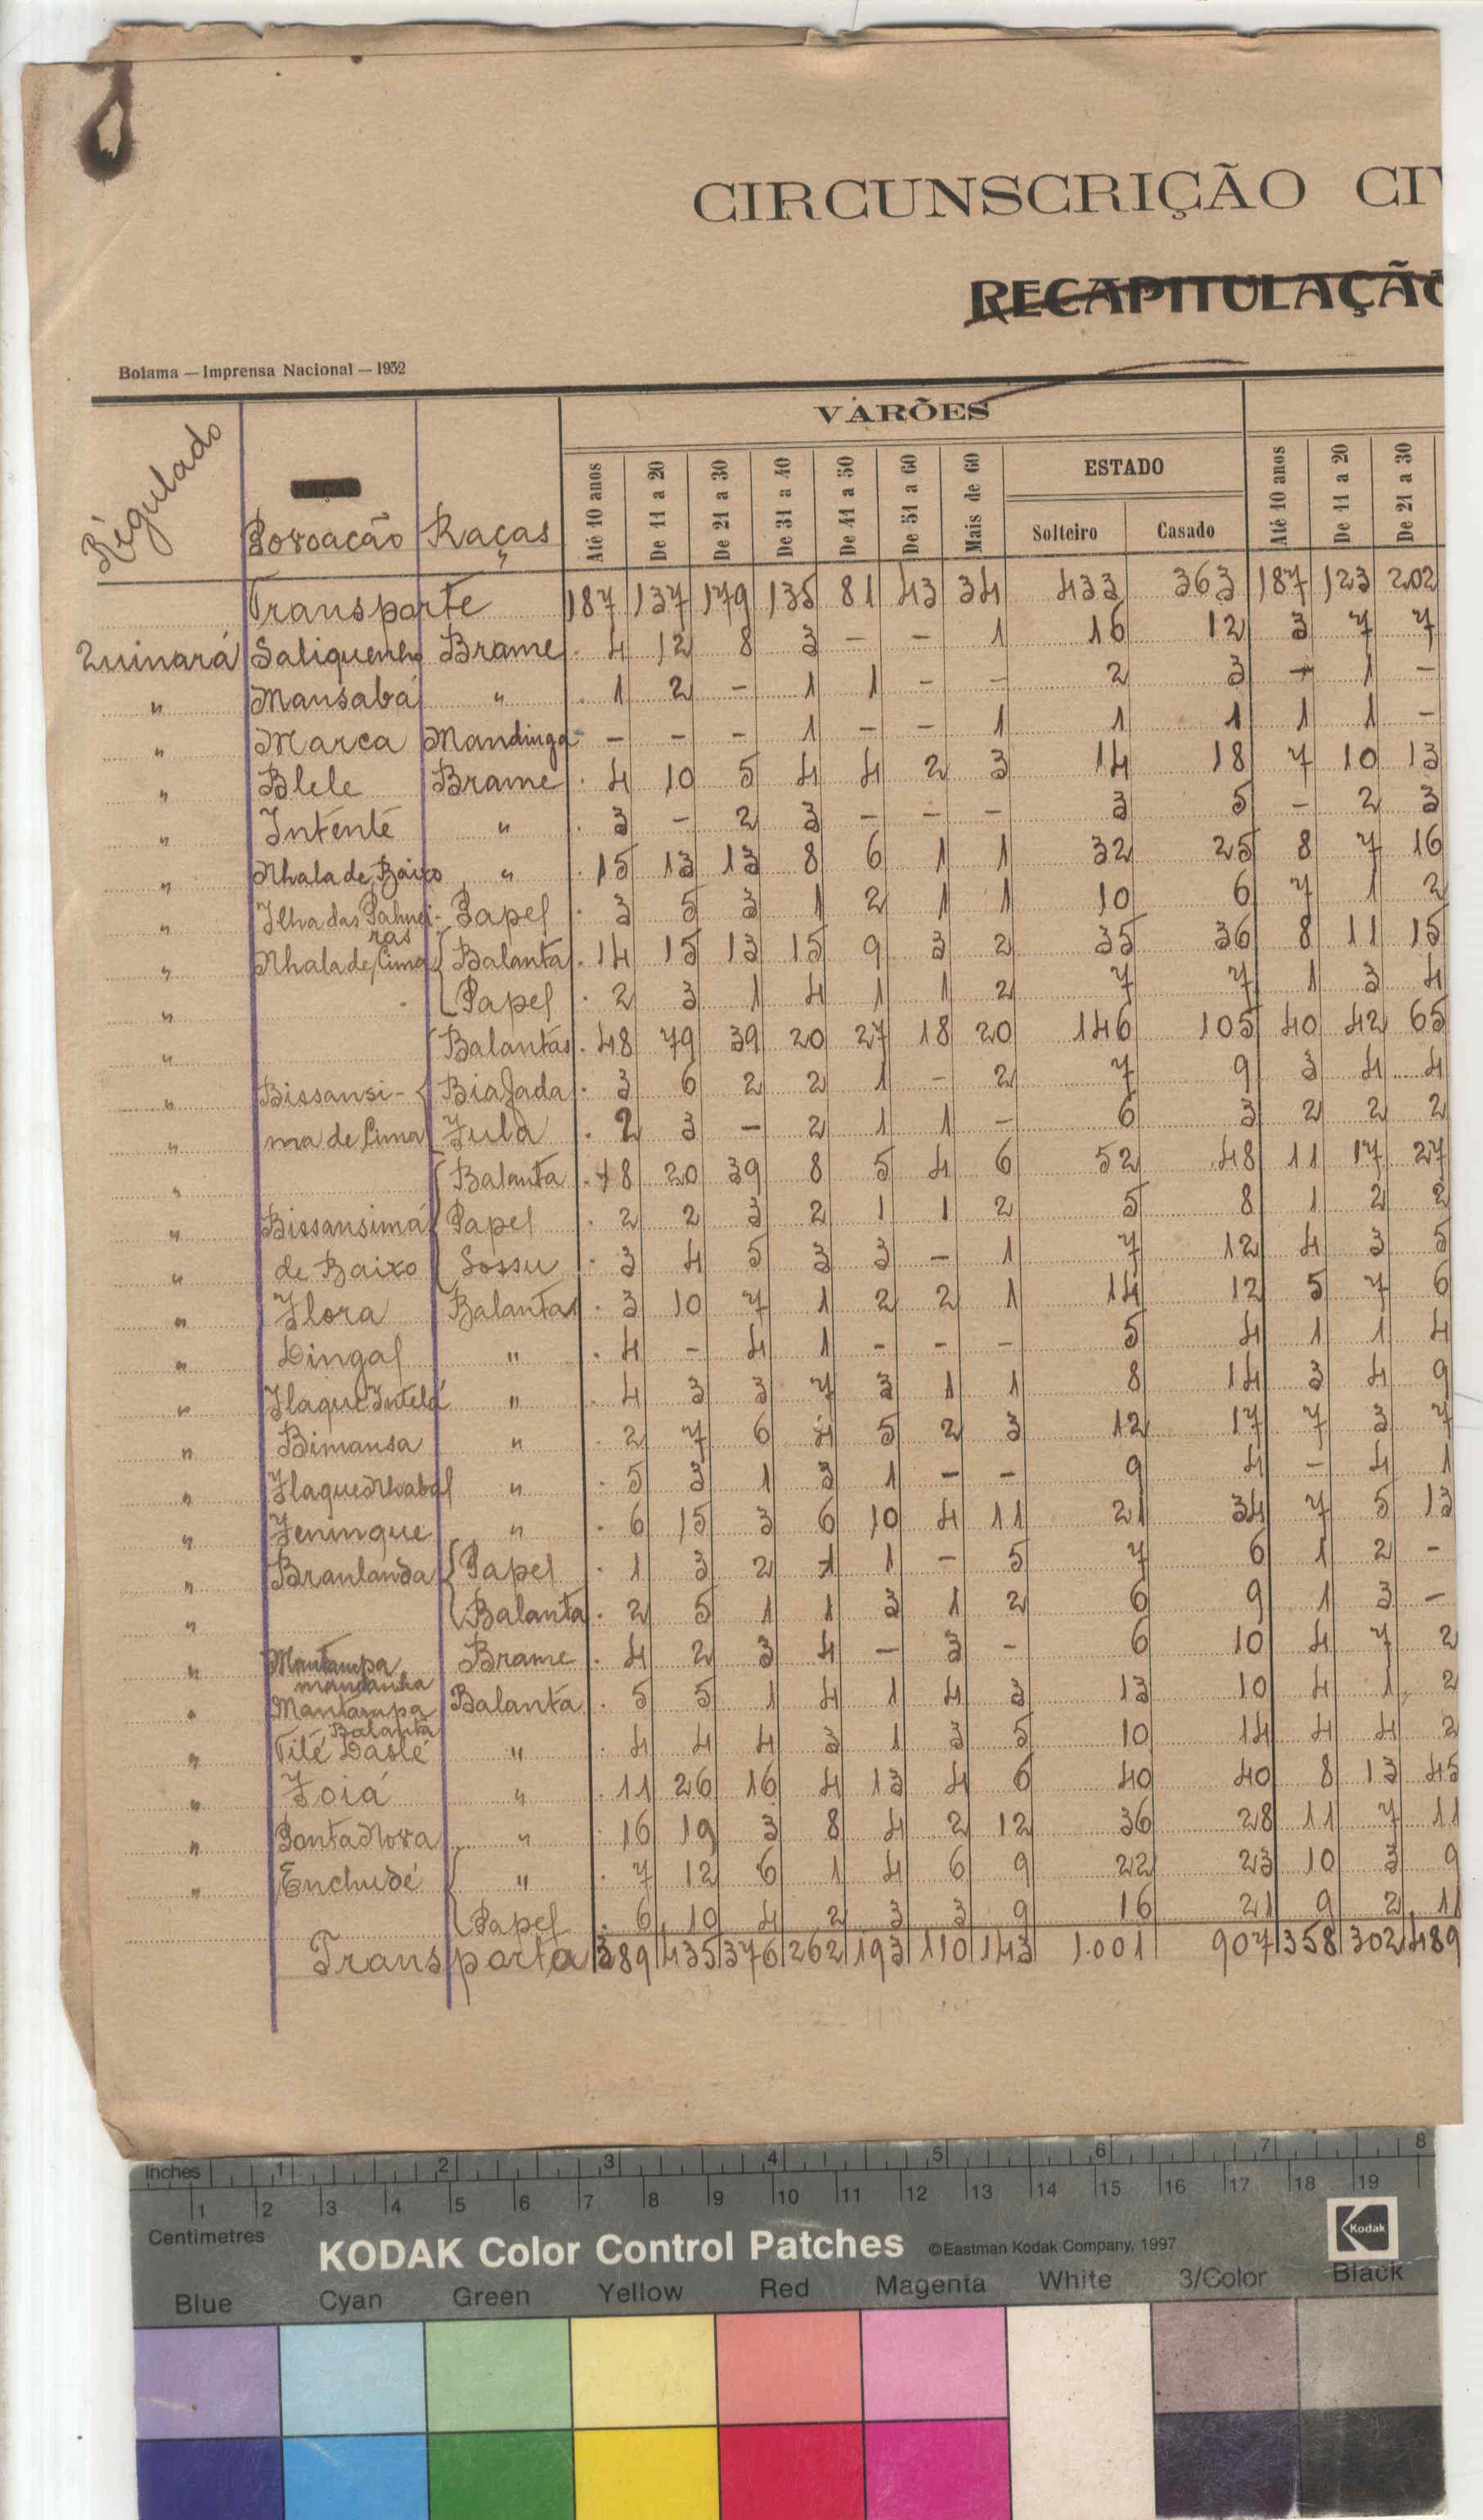 CIRCUNSCRIÇÃO CI
RECAPITULAÇÃO
Bolama — Imprensa Nacional — 1932
VARÕES
Régulado Povoação Raças Até 10 anos De 11 a 20 De 21 a 30 De 31 a 40 De 41 a 50 De 51 a 60 Mais de 60 ESTADO Solteiro Casado Até 10 anos De 11 a 20 De 21 a 30
Transporte 187 137 179 135 81 43 34 433 363 187 123 202
Quinará Saliquenhe Brame 4 12 8 3 - - 1 16 12 3 7 7
" Mansabá " 1 2 - 1 1 - - 2 3 - 1 -
" Marca Mandinga - - - 1 - - 1 1 1 1 1 -
" Blele Brame 4 10 5 4 4 2 3 14 18 7 10 13
" Intente " 3 - 2 3 - - - 3 5 - 2 3
" Nhala de Baixo " 15 13 13 8 6 1 1 32 25 8 7 16
" Ilha das Palmei- Papel 3 5 3 1 2 1 1 10 6 7 1 2
ras
" Nhala de Cima Balanta 14 15 13 15 9 3 2 35 36 8 11 15
" Papel 2 3 1 4 1 1 2 7 7 1 3 4
" Balantas 48 79 39 20 27 18 20 146 105 40 42 65
" Bissansi- Biafada 3 6 2 2 1 - 2 7 9 3 4 4
" ma de Cima Fula 2 3 - 2 1 1 - 6 3 2 2 2
" Balanta 18 20 39 8 5 4 6 52 48 11 17 27
" Bissansimá Papel 2 2 3 2 1 1 2 5 8 1 2 2
" de Baixo Sossu 3 4 5 3 3 - 1 7 12 4 3 5
" Flora Balantas 3 10 7 1 2 2 1 14 12 5 7 6
" Dingal " 4 - 4 1 - - - 5 4 1 1 4
" Flaque Intelá " 4 3 3 7 3 1 1 8 14 3 4 9
" Bimansa " 2 7 6 4 5 2 3 12 17 7 3 7
" Flaque Nhabal " 5 3 1 3 1 - - 9 4 - 4 1
" Feninque " 6 15 3 6 10 4 11 21 34 7 5 13
" Branlanda Papel 1 3 2 1 1 - 5 7 6 1 2 -
" Balanta 2 5 1 1 3 1 2 6 9 1 3 -
" Mantampa Brame 4 2 3 4 - 3 - 6 10 4 7 2
mancanha
" Mantampa Balanta 5 5 1 4 1 4 3 13 10 4 1 2
Balanta
" Tilé " 4 4 4 3 1 3 5 10 14 4 4 2
" Foiá " 11 26 16 4 13 4 6 40 40 8 13 45
" Ponta Nova " 16 19 3 8 4 2 12 36 28 11 7 11
" Enchudé " 7 12 6 1 4 6 9 22 23 10 3 9
Papel 6 10 4 2 3 3 9 16 21 9 2 11
Transporta 389 435 376 262 193 110 143 1.001 907 358 302 489
Inches 1 2 3 4 5 6 7 8
1 2 3 4 5 6 7 8 9 10 11 12 13 14 15 16 17 18 19
Centimetres
KODAK Color Control Patches ©Eastman Kodak Company, 1997 Kodak
Blue Cyan Green Yellow Red Magenta White 3/Color Black